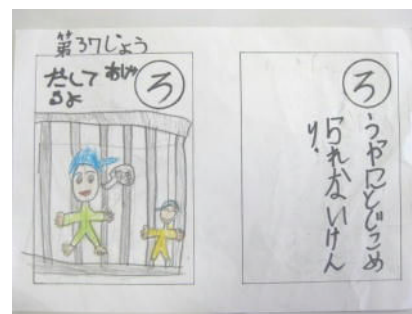 第37じょう
ろ
だして
るよ
ろ
うやにとじこめ
られないけん
り、